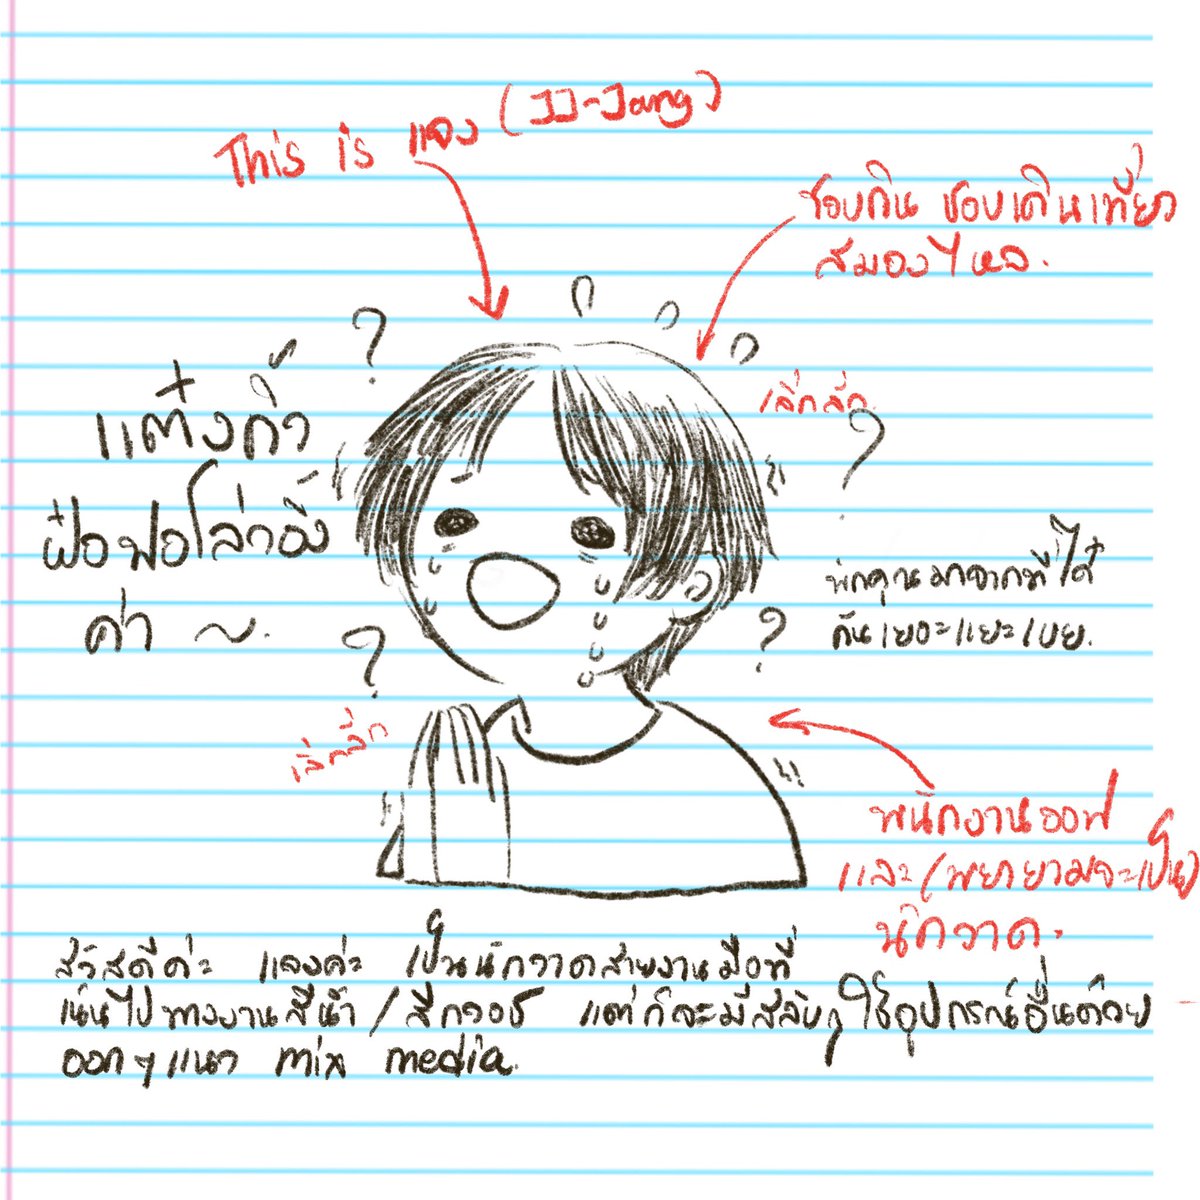 This is แจง (JJ-Jang)
ชอบกิน ชอบเดินเที่ยว
สมองไหล.
?
เลิ่กลั่ก
?
แต๋งกิ้ว
ฝ๋อฟอโล่วอิ้ง
ค่า ~.
พวกคุณมาจากที่ใด๋
กันเยอะแยะเบย.
?
?
เลิ่กลั่ก
พนักงานออฟ
และ (พยายามจะเป็น)
นักวาด.
สวัสดีค่ะ แจงค่ะ เป็นนักวาดสายงานมือที่
เน้นไปทางงานสีน้ำ / สีกวอช แต่ก็จะมีสลับๆ ใช้อุปกรณ์อื่นด้วย
ออกๆ แนว mix media.